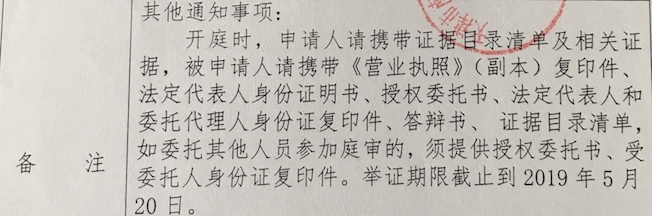 其他通知事项:
开庭时,申请人请携带证据目录清单及相关证
据,被申请人请携带《营业执照》(副本)复印件、
法定代表人身份证明书、授权委托书、法定代表人和
委托代理人身份证复印件、答辩书、 证据目录清单,
如委托其他人员参加庭审的,须提供授权委托书、受
备 注
委托人身份证复印件。举证期限截止到 2019 年 5 月
20 日。